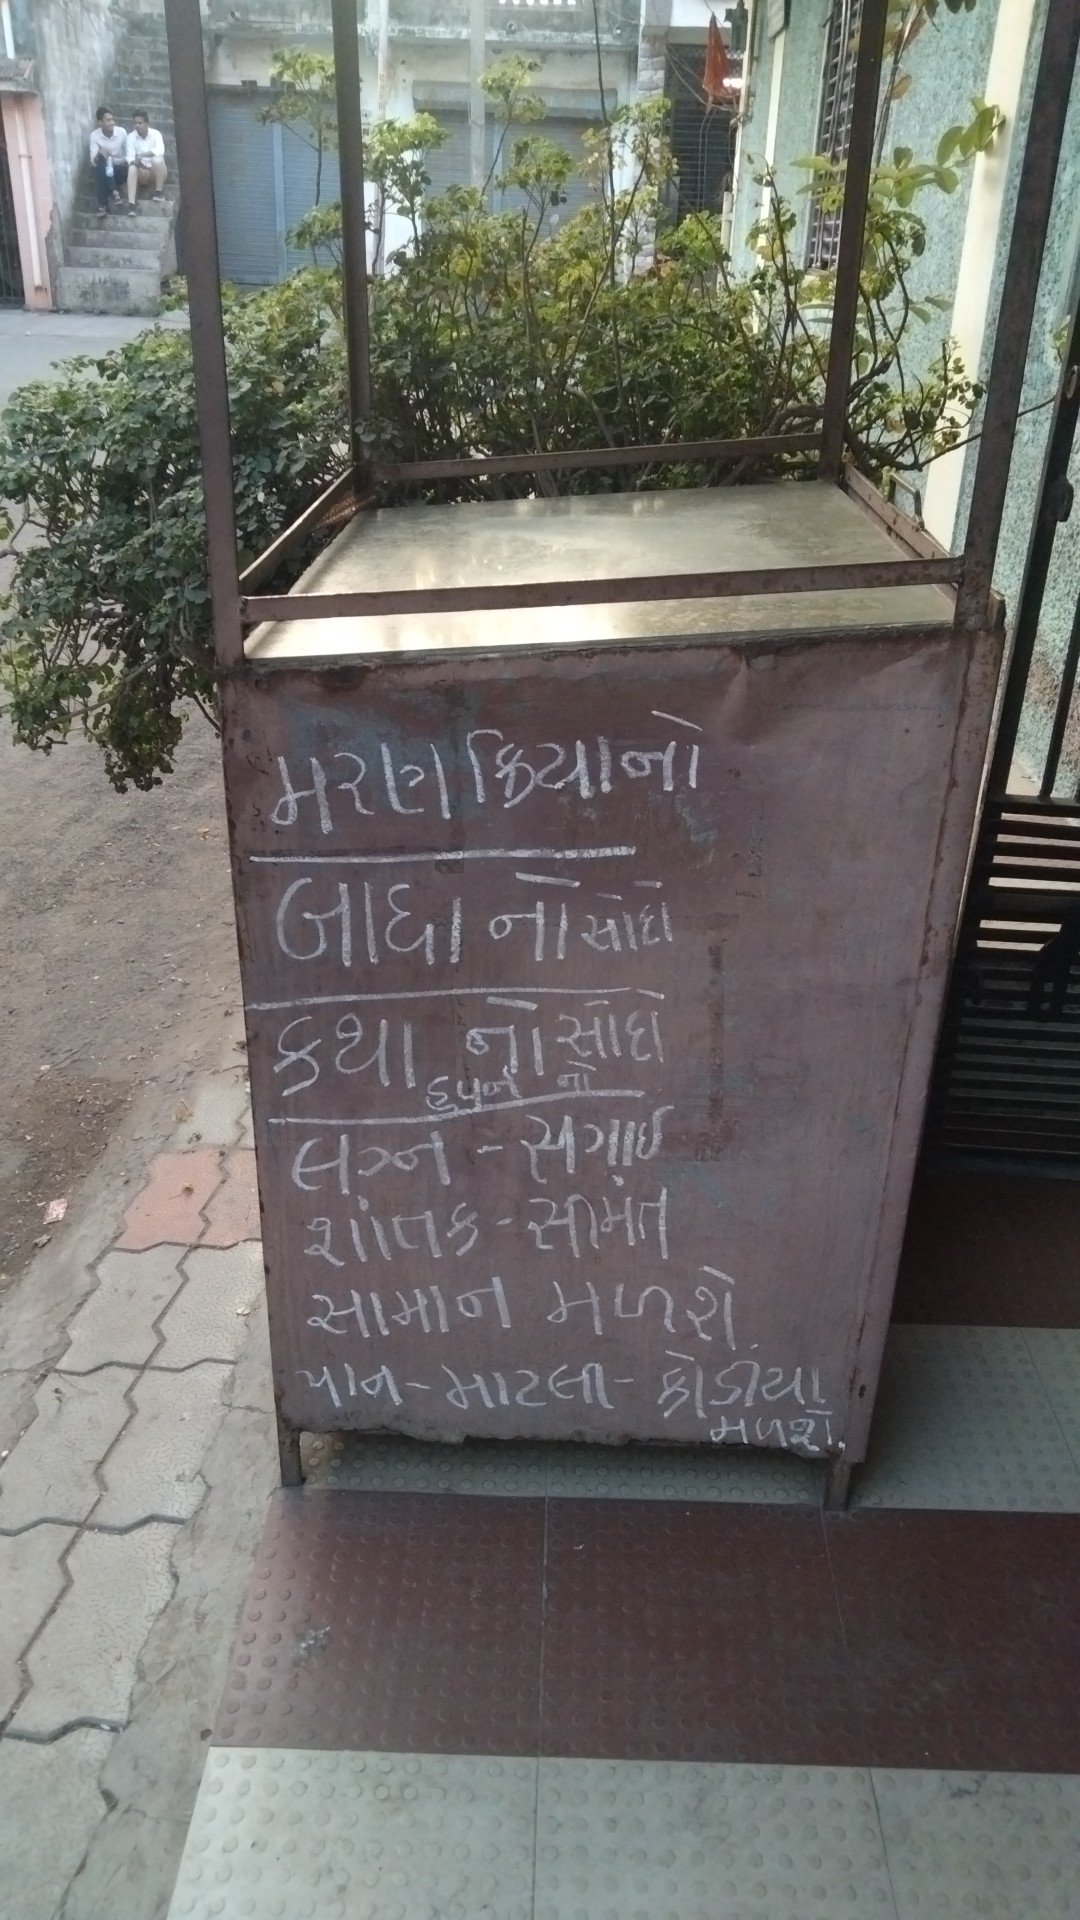 મરણ ક્રિયાનો
બાધા નો સોદો
કથા નો સોદો
હવન નો
લગ્ન - સગાઈ
શાંતક - સીમંત
સામાન મળશે.
પાન - માટલા - કોડીયા
મળશે.